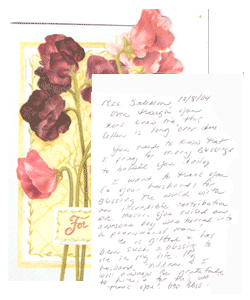 For
Mrs. 12/8/04
Even though you
don't know me, this
letter is long over due
You need to know that
I pray for many blessings
to be with you today
I want to thank you
& your husband for
blessing the world with
an incredible contribution
to music. You raised an
awesome boy who turned into
a phenomenal man!
He is gifted & has
been such a blessing to
me in my life. My
husband, & I
will always be grateful
to him, & for this we
thank you! God Bless